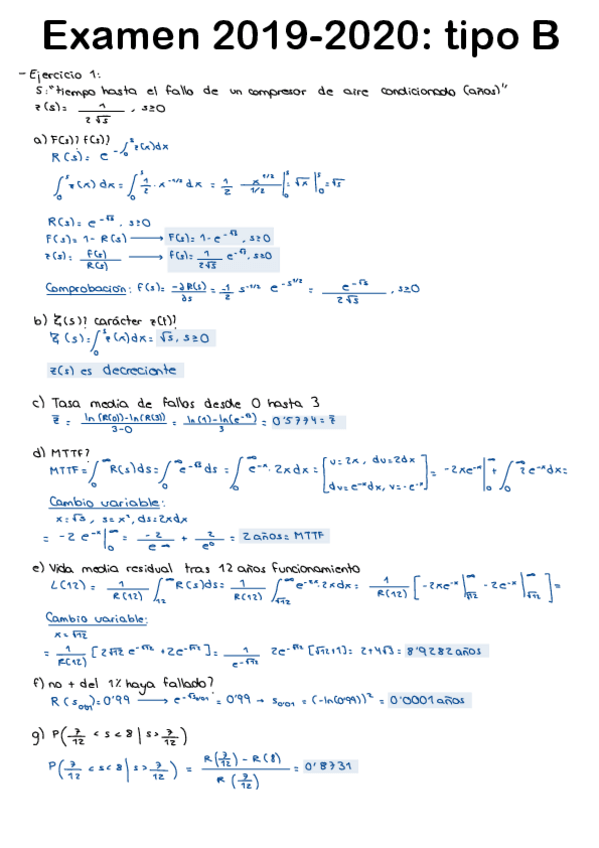 Examen 2019-2020: tipo B
- Ejercicio 1:
S: "tiempo hasta el fallo de un compresor de aire condicionado (años)"
z(s) = 1/(2√s), s≥0
a) F(s)? f(s)?
R(s) = e^(-∫₀ˢ z(x)dx)
∫₀ˢ z(x)dx = ∫₀ˢ 1/2 · x^(-1/2) dx = 1/2 x^(1/2)/(1/2) |₀ˢ = √x |₀ˢ = √s
R(s) = e^(-√s), s≥0
F(s) = 1 - R(s) ⟶ F(s) = 1 - e^(-√s), s≥0
z(s) = f(s)/R(s) ⟶ f(s) = 1/(2√s) e^(-√s), s≥0
Comprobación: f(s) = -∂R(s)/∂s = -1/2 s^(-1/2) e^(-s^(1/2)) = e^(-√s)/(2√s), s≥0
b) ζ(s)? carácter z(t)?
ζ(s) = ∫₀ˢ z(x)dx = √s, s≥0
z(s) es decreciente
c) Tasa media de fallos desde 0 hasta 3
z̄ = (ln(R(0)) - ln(R(3)))/(3-0) = (ln(1) - ln(e^(-√3)))/3 = 0'5774 = z̄
d) MTTF?
MTTF = ∫₀^∞ R(s)ds = ∫₀^∞ e^(-√s) ds = ∫₀^∞ e^(-x) · 2xdx = [u=2x, du=2dx
dv=e^(-x)dx, v=-e^(-x)] = -2xe^(-x) |₀^∞ + ∫₀^∞ 2e^(-x)dx =
Cambio variable:
x=√s, s=x², ds=2xdx
= -2e^(-x) |₀^∞ = -2/e^∞ + 2/e⁰ = 2 años = MTTF
e) Vida media residual tras 12 años funcionamiento
L(12) = 1/R(12) ∫₁₂^∞ R(s)ds = 1/R(12) ∫_√12^∞ e^(-x) · 2xdx = 1/R(12) [-2xe^(-x) |_√12^∞ - 2e^(-x) |_√12^∞] =
Cambio variable:
x=√12
= 1/R(12) [2√12 e^(-√12) + 2e^(-√12)] = 1/e^(-√12) 2e^(-√12) [√12+1] = 2+4√3 = 8'9282 años
f) no + del 1% haya fallado?
R(s₀'₀₁) = 0'99 ⟶ e^(-√s₀'₀₁) = 0'99 → s₀'₀₁ = (-ln(0'99))² = 0'0001 años
g) P(7/12 < s < 8 | s > 7/12)
P(7/12 < s < 8 | s > 7/12) = (R(7/12) - R(8))/R(7/12) = 0'8731